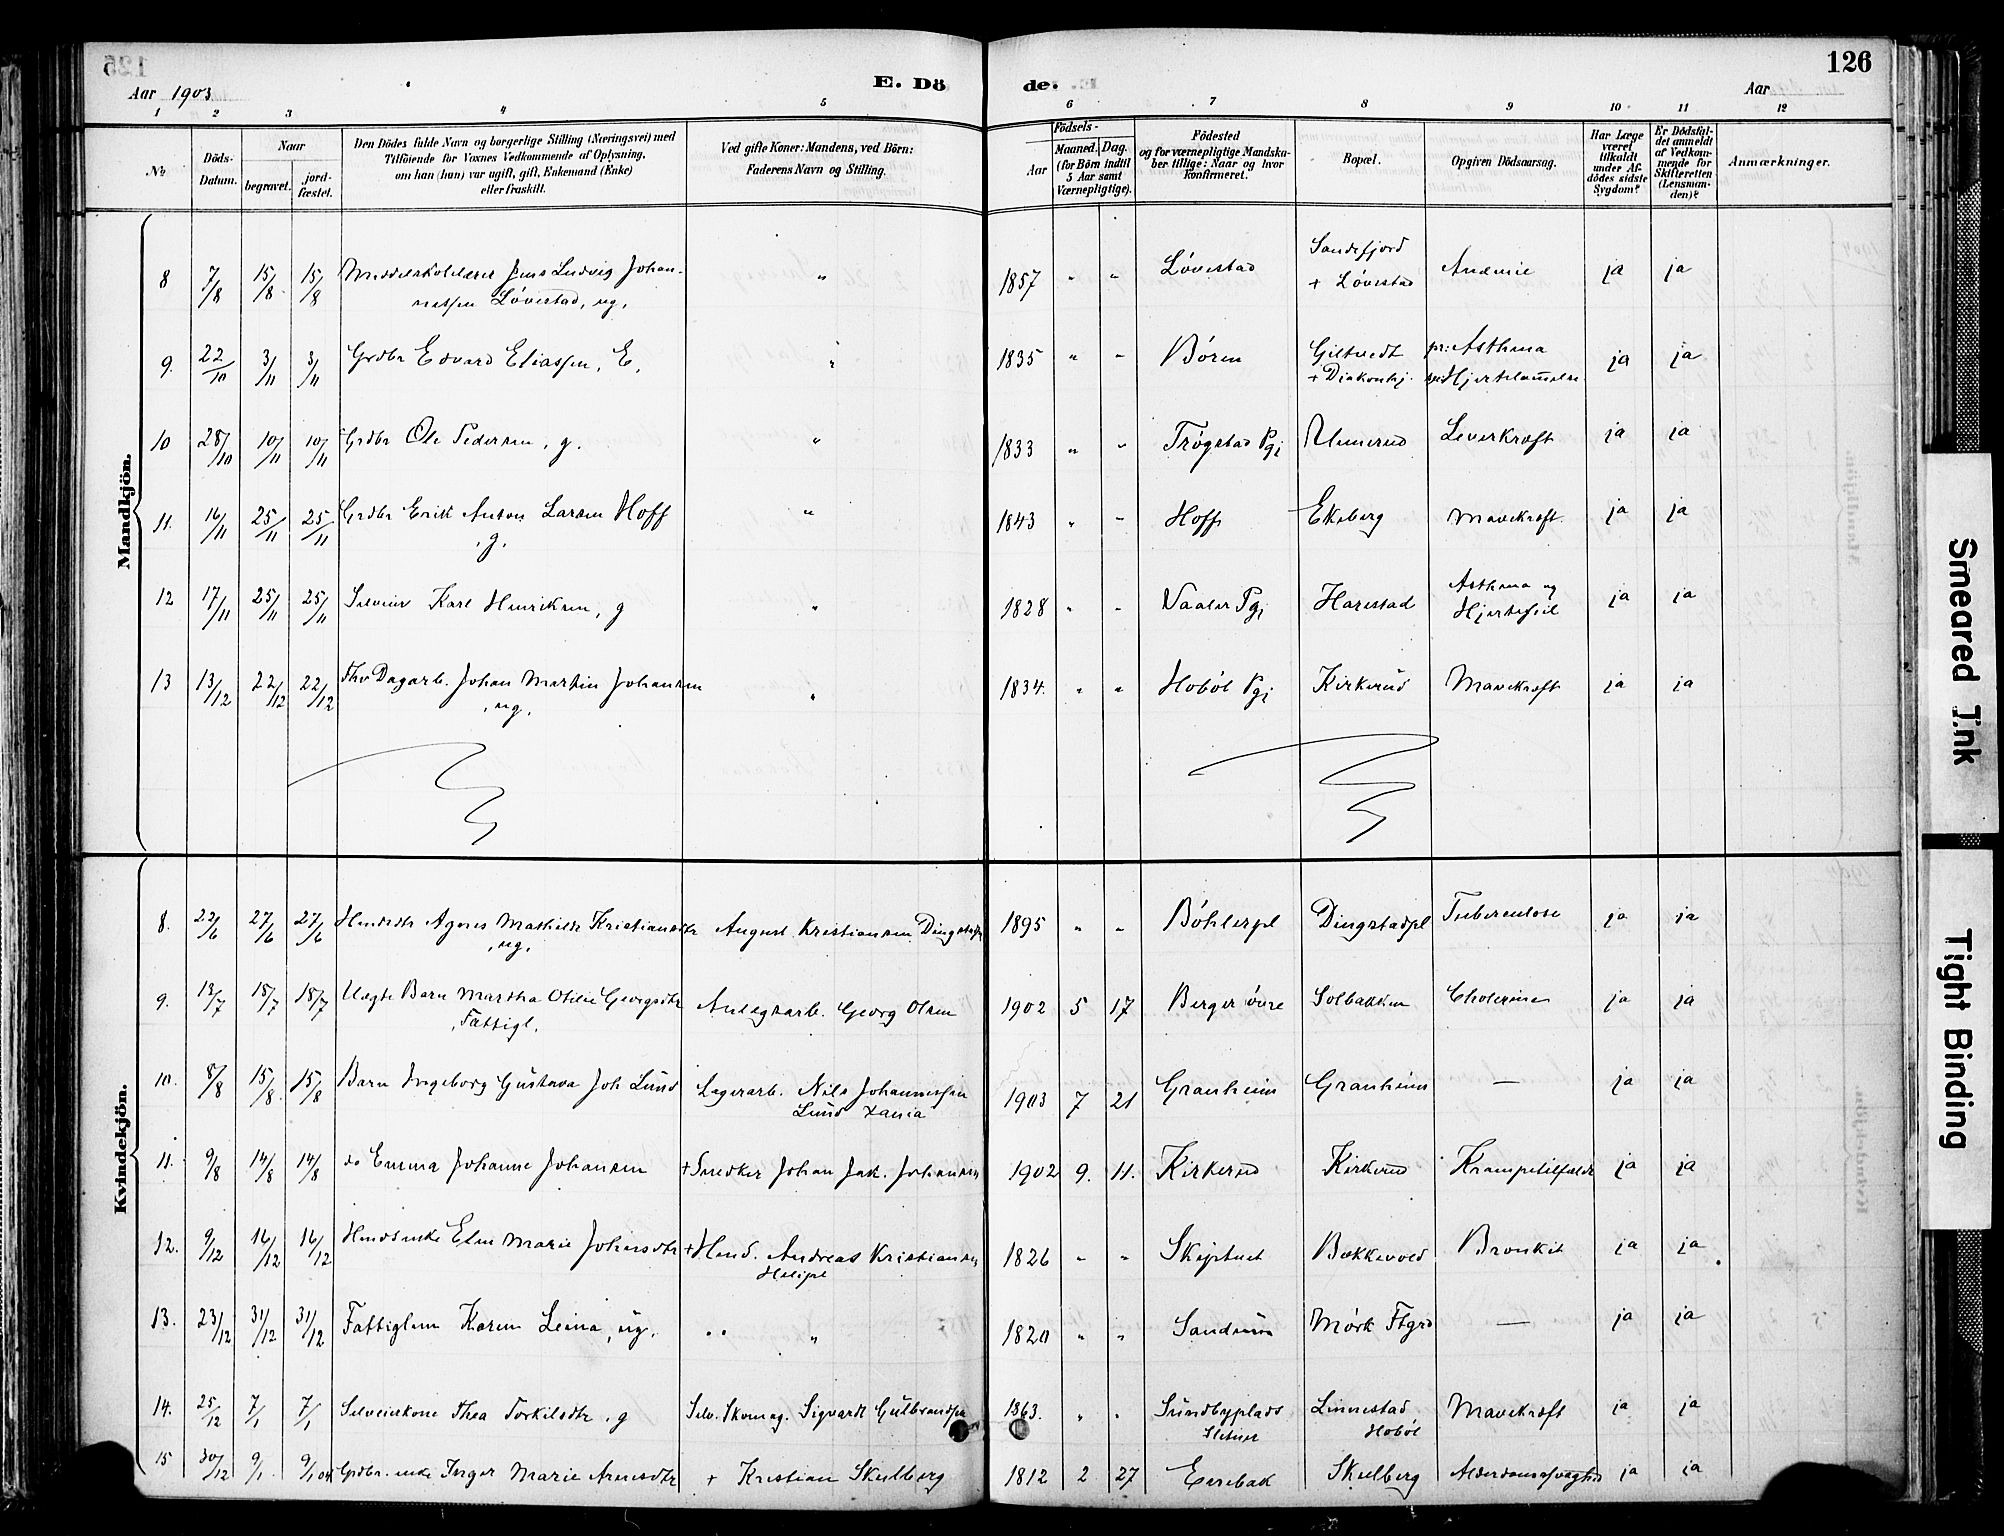 126
Aar 1903
E. Dö
de.
Aar
1 2 3 4 5
6 7 8 9 10 11 12
No
Döds-Datum.
Naar
begravet.
jord-fæstet.
Den Dödes fulde Navn og borgerlige Stilling (Næringsvei) med
Tilföiende for Voxnes Vedkommende af Oplysning,
om han (hun) var ugift, gift, Enkemand (Enke)
eller fraskilt.
Ved gifte Koner: Mandens, ved Börn:
Faderens Navn og Stilling.
Födsels-
Aar
Maaned. Dag.
(for Börn indtil
5 Aar samt
Værnepligtige).
Födested
og for værnepligtige Mandska-
ber tillige: Naar og hvor
konfirmeret.
Bopæl.
Opgiven Dödsaarsag.
Har Læge
været
tilkaldt
under Af-
dödes sidste
Sygdom?
Er Dödsfal-
det anmeldt
af Vedkom-
mende for
Skifteretten
(Lensman-
den)?
Anmærkninger.
Mandkjön.
8 7/8 15/8 15/8 Middelskolelærer Jens Ludvig Johan- " 1857 " " Lövestad Sandefjord Anæmie ja ja
nessen Lövestad, ug. + Lövestad
9. 22/10 3/11 3/11 Grdbr Edvard Eliassen, E. " 1835 " " Bören Giltvedt pr: Asthma ja ja
+ Diakonhj. Hjertelammelse
10 28/10 10/11 10/11 Grdbr Ole Pedersen, g. " 1833 " " Trögstad Pgj Unnerud Leverkræft ja ja
11. 16/11 25/11 25/11 Grdbr Erik Anton Larsen Hoff " 1843 " " Hoff Ekeberg Mavekræft. ja ja
, g.
12 17/11 25/11 25/11 Selveier Karl Henriksen, g " 1828 " " Vaaler Pgj Harestad Asthma og ja ja
Hjertefeil
13 13/12 22/12 22/12 Fhv Dagarb. Johan Martin Johansen " 1834. " " Hoböl Pgj Kirkerud Mavekræft ja ja
, ug.
Kvindekjön.
8. 22/6 27/6 27/6 Husdtr Agnes Mathilde Kristiansdtr August Kristiansen Dingstadpl 1895 " " Böhlerpl Dingstadpl Tuberculose ja ja
, ug.
9. 13/7 18/7 18/7 Uægte Barn Martha Otilie Georgsdtr Anlegsarb. Georg Olsen 1902 5 17 Berger övre Solbakken Cholerine ja ja
, Fattigl.
10. 8/8 15/8 15/8 Barn Ingeborg Gustava Joh Lund Lagerarb. Nils Johannessen 1903 7 21 Granheim Granheim — ja ja
Lund Xania
11. 9/8 14/8 14/8 do Emma Johanne Johansen + Snedker Johan Jak. Johansen 1902 9. 11. Kirkerud Kirkerud Krampetilfælde ja ja
12. 9/12 16/12 16/12 Husdsenke Elen Marie Johnsdtr + Husd. Andreas Kristiansen 1826 " " Skiptvet Bækkevold Bronkit ja ja
Helipl
13. 23/12 31/12 31/12 Fattiglem Karen Leina, ug. " " 1820 " " Mörk Ftgrd — ja ja
14. 25/12 7/1 7/1 Selveierkone Thea Torkilsdtr, g Selv. Skomag. Sigvardt Gulbrandsen 1863. " " Sundbyplads Linnestad Mavekræft ja ja
Hoböl
15 30/12 9/1 9/1 04 Grdbr. enke Inger Marie Arnesdtr + Kristian Skulberg 1812 2 27 Enebak Skulberg Alderdomssvaghed ja ja
Smeared Ink
Tight Binding